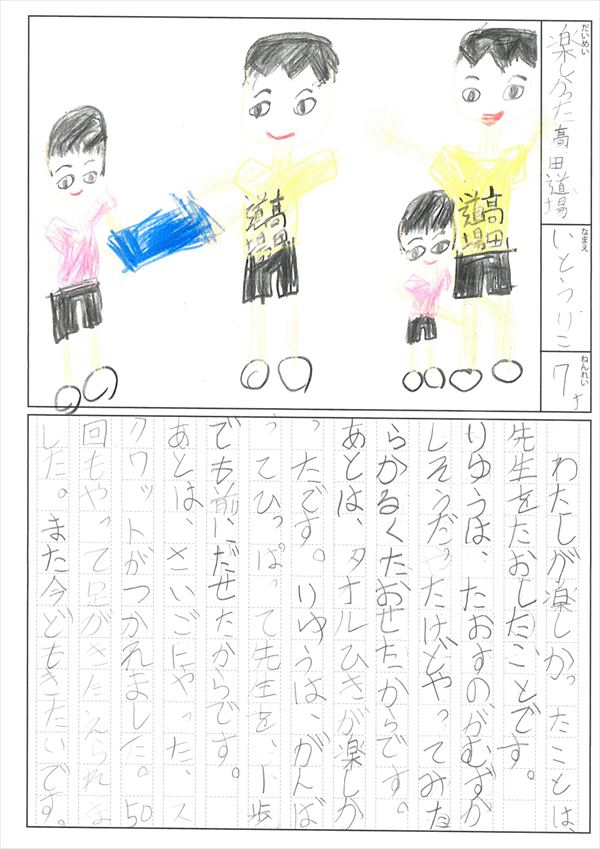 だいめい
楽しかった高田道場
なまえ
いとうりこ
ねんれい
7才
高田
道場
高田
道場
わたしが楽しかったことは、
先生をたおしたことです。
りゆうは、たおすのがむずか
しそうだったけどやってみた
らかるくたおせたからです。
あとは、タオルひきが楽しか
ったです。りゆうは、がんば
ってひっぱって先生を、下歩
でも前にだせたからです。
あとは、さいごにやった、ス
クワットがつかれました。50
回もやって足がきたえられま
した。また今どもきたいです。